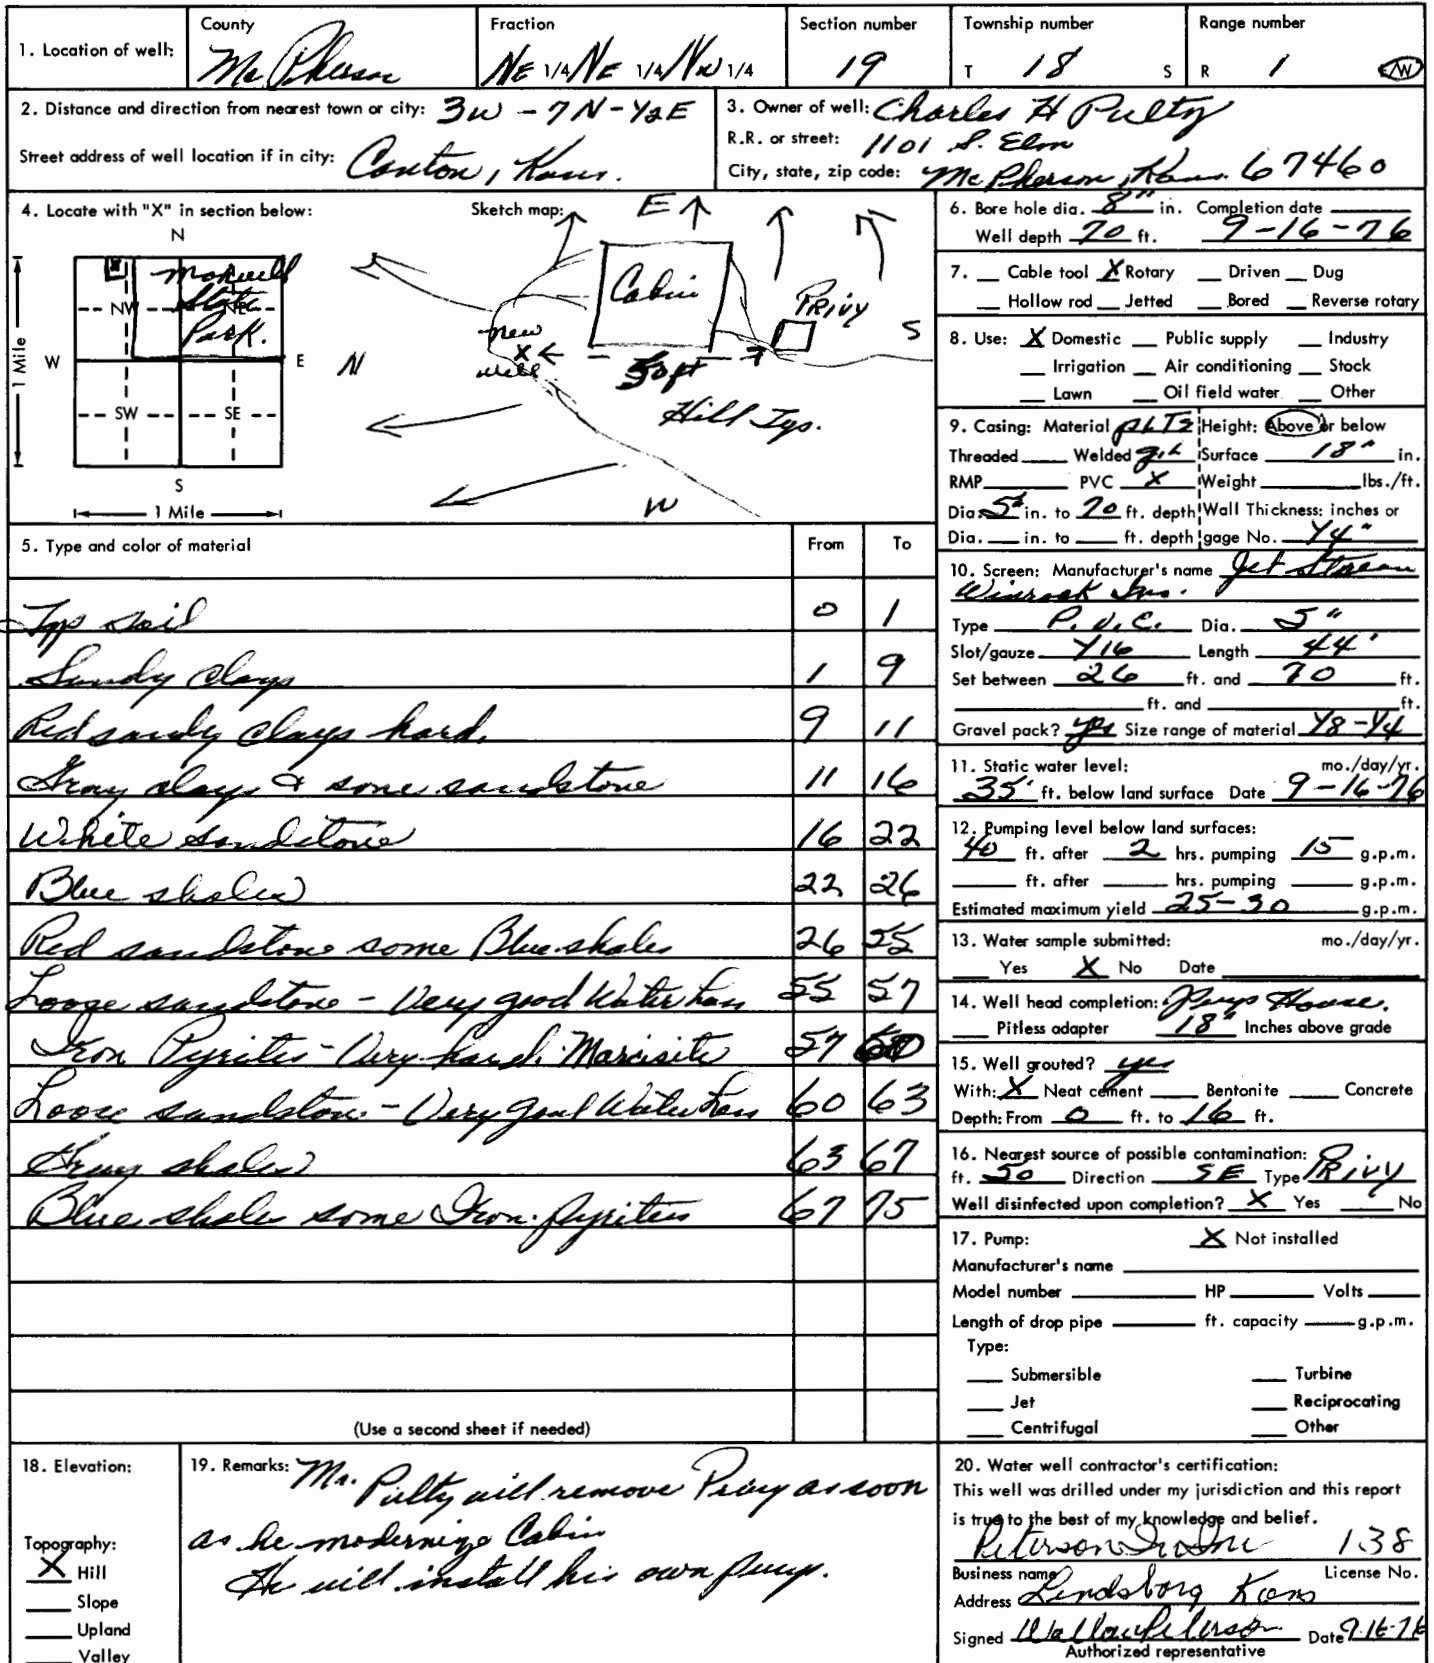 1. Location of well: County Fraction Section number Township number Range number
Mc Pherson NE 1/4 NE 1/4 NW 1/4 19 T 18 S R 1 E/W
2. Distance and direction from nearest town or city: 3W - 7N - 1/2E
Street address of well location if in city: Canton, Kans.
3. Owner of well: Charles H Pulty
R.R. or street: 1101 S. Elm
City, state, zip code: McPherson, Kans. 67460
4. Locate with "X" in section below:
N
1 Mile
X
Maxwell
State
Park.
NW NE
W E
SW SE
S
1 Mile
Sketch map:
E
Cabin
Privy
S
new
X
well
50 ft
N
Hill Tys.
W
5. Type and color of material From To
Top soil 0 1
Sandy clays 1 9
Red sandy clays hard. 9 11
Gray clays & some sandstone 11 16
White sandstone 16 22
Blue shales 22 26
Red sandstone some Blue shales 26 55
Loose sandstone - Very good Water 55 57
Iron Pyrites - Very hard. Marcisite 57 60
Loose sandstone - Very good Water 60 63
Gray shales 63 67
Blue shales some Iron pyrites 67 75
(Use a second sheet if needed)
6. Bore hole dia. 8" in. Completion date
Well depth 70 ft. 9-16-76
7. Cable tool X Rotary Driven Dug
Hollow rod Jetted Bored Reverse rotary
8. Use: X Domestic Public supply Industry
Irrigation Air conditioning Stock
Lawn Oil field water Other
9. Casing: Material Height: Above or below
Threaded Welded Surface 18" in.
RMP PVC X Weight lbs./ft.
Dia. 5" in. to 70 ft. depth Wall Thickness: inches or
Dia. in. to ft. depth gage No. 1/4"
10. Screen: Manufacturer's name Jet Stream
Inc.
Type P.V.C. Dia. 5"
Slot/gauze 1/16 Length 44'
Set between 26 ft. and 70 ft.
ft. and ft.
Gravel pack? yes Size range of material 1/8-1/4
11. Static water level: mo./day/yr.
35' ft. below land surface Date 9-16-76
12. Pumping level below land surfaces:
40 ft. after 2 hrs. pumping 15 g.p.m.
ft. after hrs. pumping g.p.m.
Estimated maximum yield 25-30 g.p.m.
13. Water sample submitted: mo./day/yr.
Yes X No Date
14. Well head completion: Pump House.
Pitless adapter 18" Inches above grade
15. Well grouted? yes
With: X Neat cement Bentonite Concrete
Depth: From 0 ft. to 16 ft.
16. Nearest source of possible contamination:
ft. 50 Direction SE Type Privy
Well disinfected upon completion? X Yes No
17. Pump: X Not installed
Manufacturer's name
Model number HP Volts
Length of drop pipe ft. capacity g.p.m.
Type:
Submersible Turbine
Jet Reciprocating
Centrifugal Other
18. Elevation:
Topography:
X Hill
Slope
Upland
Valley
19. Remarks: Mr. Pulty will remove Privy as soon
as he modernize Cabin
He will install his own pump.
20. Water well contractor's certification:
This well was drilled under my jurisdiction and this report
is true to the best of my knowledge and belief.
Peterson 138
Business name License No.
Address Lindsborg Kans
Signed Peterson Date 9-16-76
Authorized representative